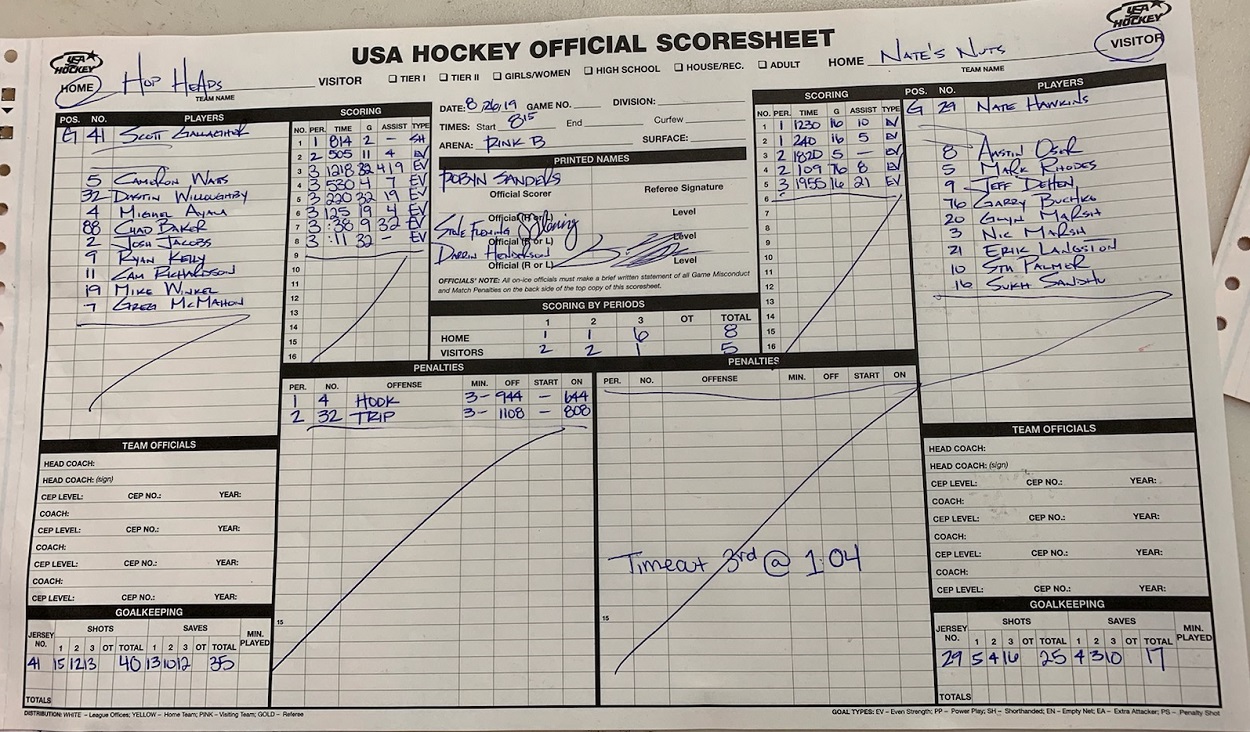 USA HOCKEY OFFICIAL SCORESHEET
USA HOCKEY
USA HOCKEY
HOME HOP HEADS VISITOR
TEAM NAME
☐ TIER I ☐ TIER II ☐ GIRLS/WOMEN ☐ HIGH SCHOOL ☐ HOUSE/REC. ☐ ADULT
HOME NATE'S NUTS VISITOR
TEAM NAME
POS. NO. PLAYERS
G 41 SCOTT GALLAGHER
5 CAMERON WATTS
32 DUSTIN WILLOUGHBY
4 MIGUEL AYALA
88 CHAD BAKER
2 JOSH JACOBS
9 RYAN KELLY
11 CAM RICHARDSON
19 MIKE WINKEL
7 GREG MCMAHON
SCORING
NO. PER. TIME G ASSIST TYPE
1 1 814 2 - SH
2 2 505 11 4 EV
3 3 1218 32 4 19 EV
4 3 530 4 7 EV
5 3 220 32 19 EV
6 3 125 19 4 EV
7 3 :38 9 32 EV
8 3 :11 32 - EV
9
10
11
12
13
14
15
16
DATE: 8/26/19 GAME NO. DIVISION:
TIMES: Start 8 15 End Curfew
ARENA: RINK B SURFACE:
PRINTED NAMES
ROBYN SANDERS
Official Scorer Referee Signature
STEVE FLEMING
Official (R or L) Level
DARRIN HENDERSON
Official (R or L) Level
Official (R or L) Level
OFFICIALS' NOTE: All on-ice officials must make a brief written statement of all Game Misconduct
and Match Penalties on the back side of the top copy of this scoresheet.
SCORING BY PERIODS
1 2 3 OT TOTAL
HOME 1 1 6 8
VISITORS 2 2 1 5
SCORING
NO. PER. TIME G ASSIST TYPE
1 1 1230 16 10 EV
2 1 240 16 5 EV
3 2 1820 5 - EV
4 2 109 76 8 EV
5 3 1955 16 21 EV
6
7
8
9
10
11
12
13
14
15
16
POS. NO. PLAYERS
G 29 NATE HAWKINS
8 AUSTIN
5 MARK RHODES
9 JEFF DEHEN
76 GARRY BUCHKO
20 GWYN MARSH
3 NIC MARSH
21 ERIK LANGSTON
10 STU PALMER
16 SUKH SANDHU
PENALTIES
PER. NO. OFFENSE MIN. OFF START ON
1 4 HOOK 3- 944 - 644
2 32 TRIP 3- 1108 - 808
15
PENALTIES
PER. NO. OFFENSE MIN. OFF START ON
Timeout 3rd @ 1:04
15
TEAM OFFICIALS
HEAD COACH:
HEAD COACH: (sign)
CEP LEVEL: CEP NO.: YEAR:
COACH:
CEP LEVEL: CEP NO.: YEAR:
COACH:
CEP LEVEL: CEP NO.: YEAR:
COACH:
CEP LEVEL: CEP NO.: YEAR:
GOALKEEPING
JERSEY NO. SHOTS SAVES MIN. PLAYED
1 2 3 OT TOTAL 1 2 3 OT TOTAL
41 15 12 13 40 13 10 12 35
TOTALS
TEAM OFFICIALS
HEAD COACH:
HEAD COACH: (sign)
CEP LEVEL: CEP NO.: YEAR:
COACH:
CEP LEVEL: CEP NO.: YEAR:
COACH:
CEP LEVEL: CEP NO.: YEAR:
COACH:
CEP LEVEL: CEP NO.: YEAR:
GOALKEEPING
JERSEY NO. SHOTS SAVES MIN. PLAYED
1 2 3 OT TOTAL 1 2 3 OT TOTAL
29 5 4 16 25 4 3 10 17
TOTALS
DISTRIBUTION: WHITE – League Offices; YELLOW – Home Team; PINK – Visiting Team; GOLD – Referee
GOAL TYPES: EV – Even Strength; PP – Power Play; SH – Shorthanded; EN – Empty Net; EA – Extra Attacker; PS – Penalty Shot